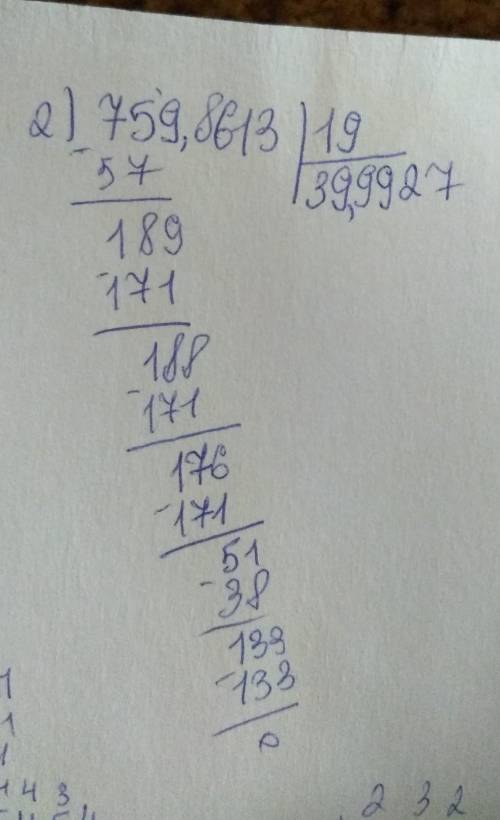 2) 759,8613 | 19
- 57 39,9927
189
- 171
188
- 171
176
- 171
51
- 38
133
- 133
0
1
1
1
1 4 3
2 3 2